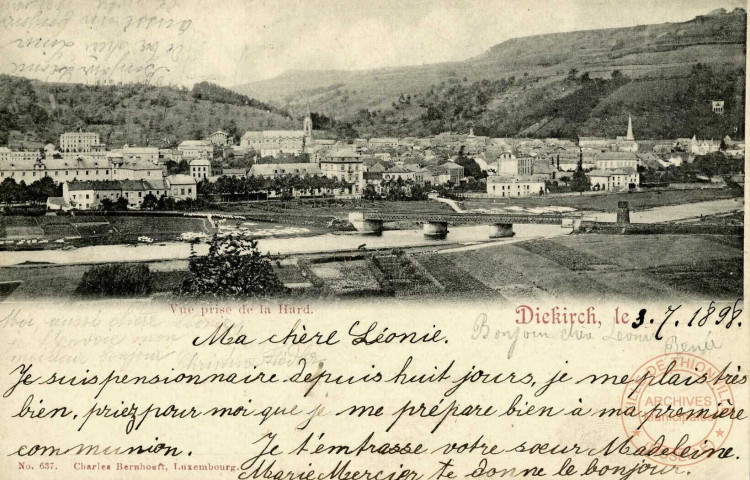 Vue prise de la Hard.
Diekirch, le 3. 7. 1898.
Ma chère Léonie.
Bonjour chère Léonie
René
Je suis pensionnaire depuis huit jours, je me plais très
bien, priez pour moi que je me prépare bien à ma première
communion. Je t'embrasse votre sœur Madeleine.
Marie Mercier te donne le bonjour.
No. 637. Charles Bernhoeft, Luxembourg.
VILLE DE THIONVILLE
ARCHIVES
Municipales
MOSELLE